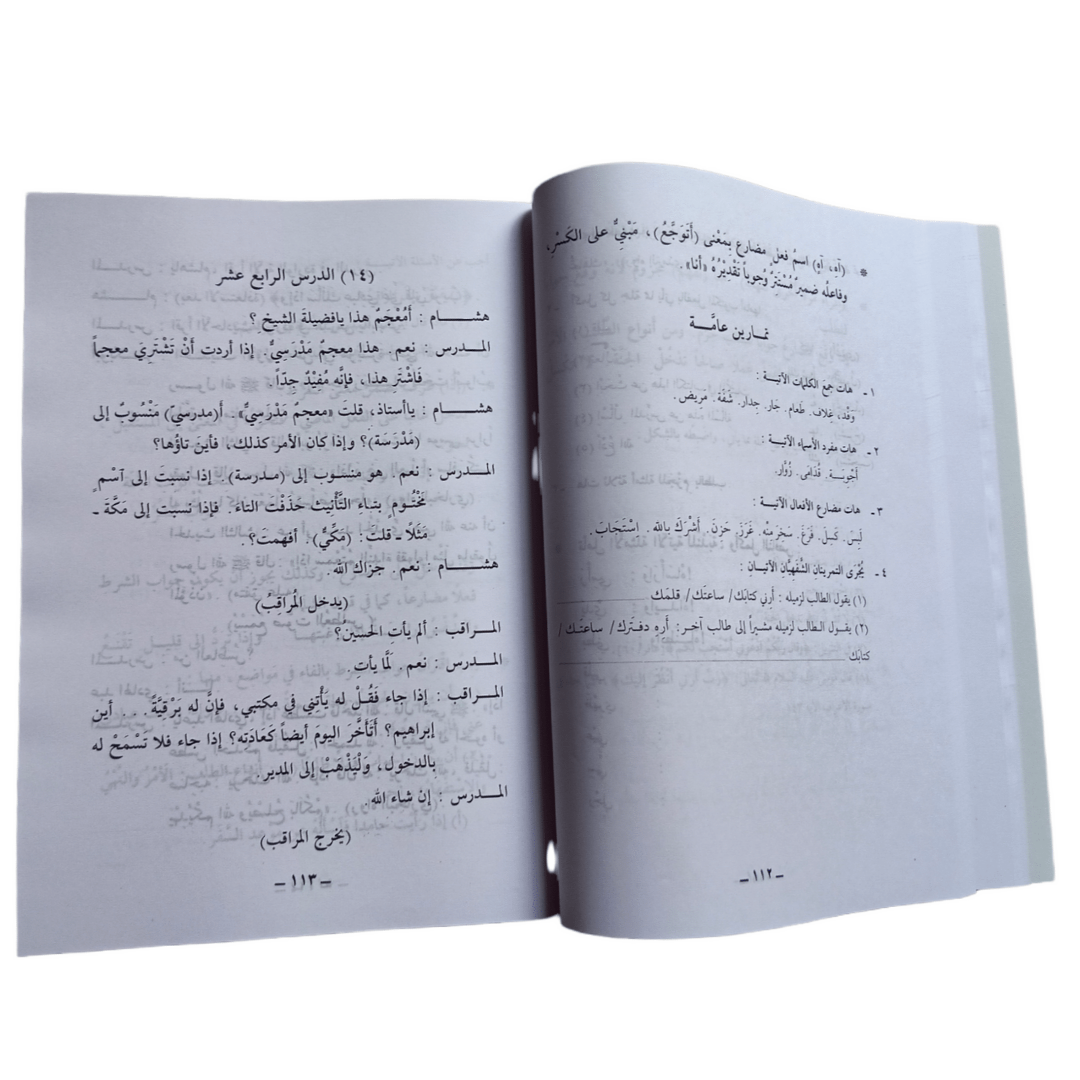 * (آه، آهِ) اسمُ فعلٍ مضارع بِمَعْنى (أَتَوَجَّعُ)، مَبْنِيٌّ على الكَسْرِ،
وفاعلُه ضميرٌ مُسْتَتِرٌ وُجوباً تَقْدِيرُهُ «أنا».
تمارين عامَّة
١ ـ هات جمع الكلمات الآتيـة :
وَفْد، غِلاف. طَعام. جَار. جِدار. شَفَة. مَريض.
٢ ـ هات مفرد الأسماء الآتيـة :
أَجْوِبـة. قُدَامَى. زُوَّار.
٣ ـ هات مضارع الأفعال الآتيـة :
لَبِسَ. كَمِلَ. فَرَغَ. سَخِرَمِنْه. غَرَزَ. حَزِنَ. أَشْرَكَ بالله. اِسْتَجابَ.
٤ ـ يُجْرَى التمرينان الشَّفَهِيَّان الآتيـان :
(١) يقول الطالب لزميله : أَرِني كتابَك/ ساعتَك/ قلمَك
(٢) يقـول الـطالب لزميله مشيراً إلى طالب آخـر: أَرِه دفـتَرك/ ساعتَـك/
كتابَك
ـ ١١٢ ـ
(١٤) الدرس الرابع عشر
هشـــــام : أَمُعْجَمٌ هذا يافضيلةَ الشيخِ ؟
المـــدرس : نعم. هذا معجمٌ مَدْرَسِيٌّ. إذا أردت أَنْ تَشْتَرِيَ معجماً
فَاشْتَرِ هذا، فإنَّه مُفِيْدٌ جِدّاً.
هشـــــام : ياأستاذ، قلتَ «معجمٌ مَدْرَسِيٌّ». أ(مدرسيّ) مَنْسُوبٌ إلى
(مَدْرَسَة)؟ وإذا كان الأمر كذلك، فأينَ تاؤُها؟
المـــدرس : نعم. هو منسوب إلى (مـدرسة). إذا نَسبتَ إلى ٱسْمٍ
مَخْتُومٍ بتـاءِ التَّأْنِيث حذَفْتَ التاءَ. فإذا نسبت إلى مَكَّةَ ـ
مَثَلًا ـ قلتَ: (مَكِّيٌّ) أفهمتَ؟
هشـــــام : نعم. جزاك الله.
(يدخل المُراقِبُ)
المـــراقب : ألم يأتِ الحُسَينُ؟
المـــدرس : نعم. لَمَّا يأتِ.
المـــراقب : إذا جاء فَقُلْ له يَأْتِني في مكتبي، فإنَّ له بَرْقِيَّةً. . . أين
إبراهيم؟ أَتَأَخَّرَ اليومَ أيضاً كَعَادَتِه؟ إذا جاء فلا تَسْمَحْ له
بِالدخولِ، وَلْيَذْهَبْ إلى المدير.
المـــدرس : إن شاء الله.
(يخرج المراقب)
ـ ١١٣ ـ